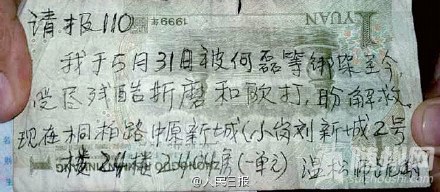 请报110
YUAN
1999年
我于5月31日被何磊等绑架至今,
受尽残酷折磨和欧打,盼解救.
现在桐柏路中原新城(小岗刘新城2号
楼24楼 2444房(一单元) 温
@人民三报